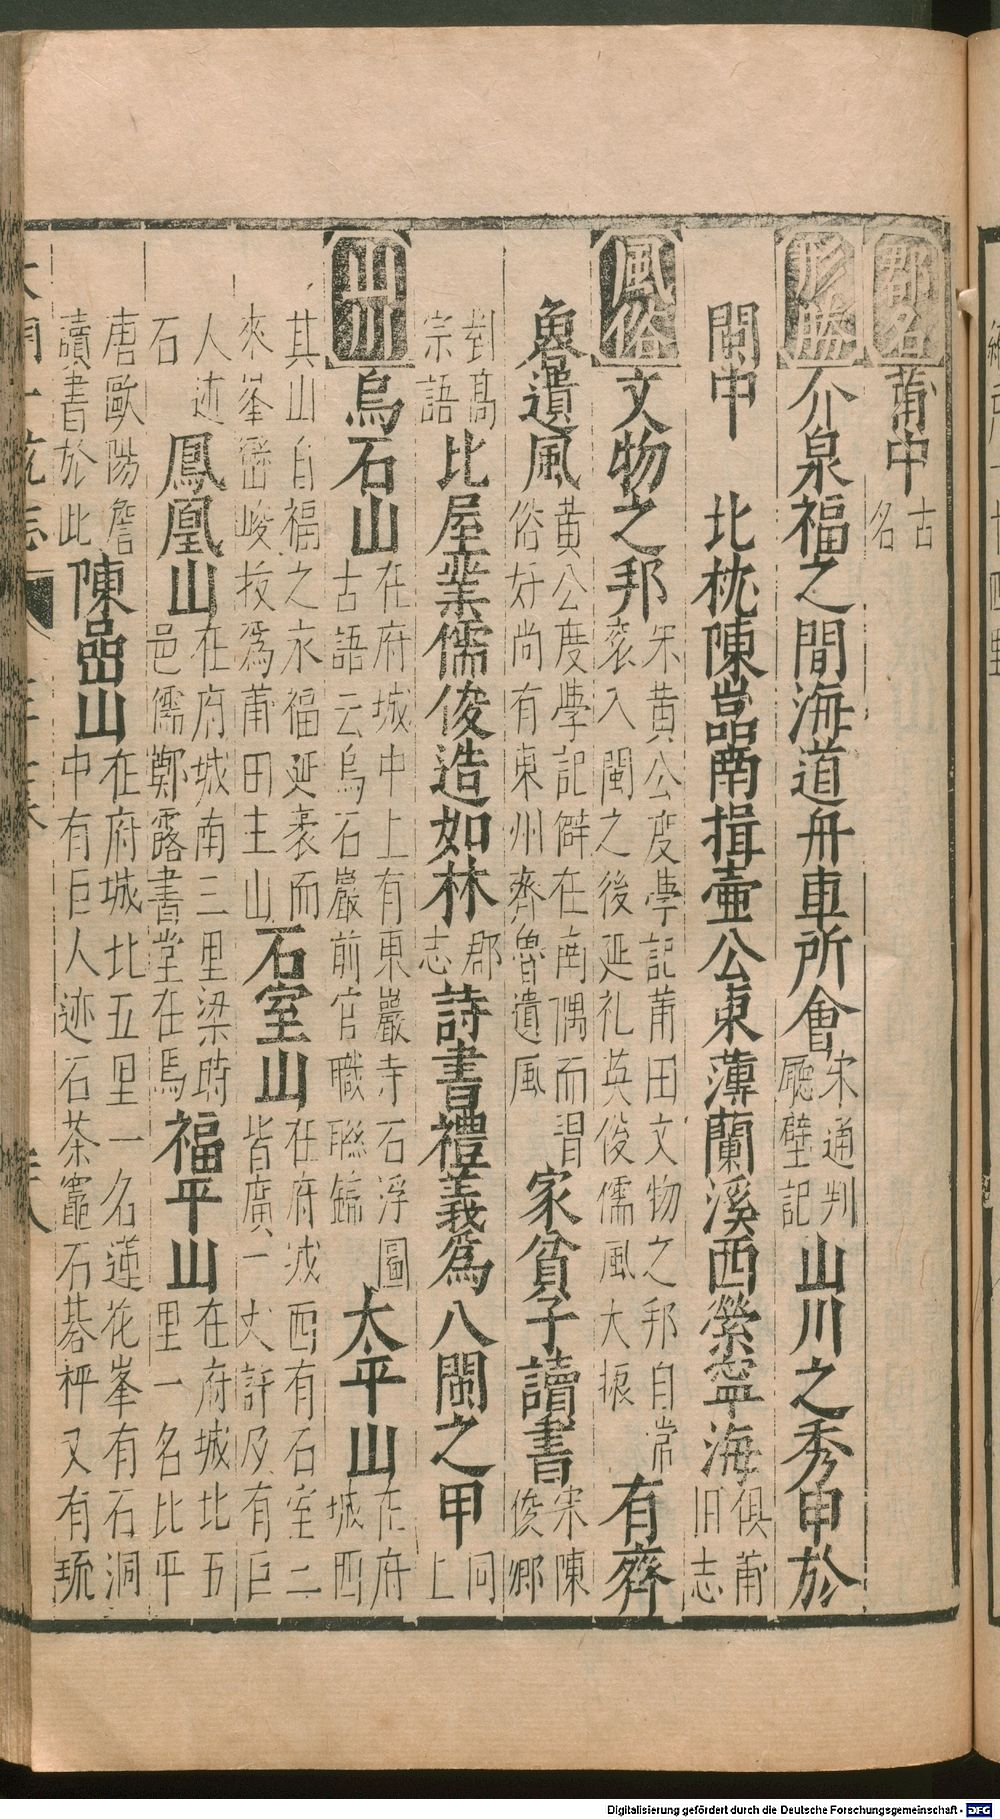 郡名 莆中 古名
形勝 介泉福之間海道舟車所會 宋通判廳壁記 山川之秀甲於
閩中 北枕陳嵓南揖壺公東薄蘭溪西縈寧海 俱莆舊志
風俗 文物之邦 宋黄公度學記莆田文物之邦自常衮入閩之後延礼英俊儒風大振 有齊
魯遺風 黄公度學記僻在南隅而習俗好尚有東州齊魯遺風 家貧子讀書 宋陳俊卿
對高宗語 比屋業儒俊造如林 郡志 詩書禮義為八閩之甲 同上
山川 烏石山 在府城中上有東巖寺石浮圖古語云烏石巖前官職聯緜 太平山 在府城西
其山自福之永福延袤而來峯巒峻拔爲莆田主山 石室山 在府城西有石室二皆廣一丈許及有巨
人迹石 鳳凰山 在府城南三里梁時邑儒鄭露書堂在焉 福平山 在府城北五里一名北平
唐歐陽詹讀書於此 陳嵓山 在府城北五里一名蓮花峯有石洞中有巨人迹石茶竈石碁枰又有琉
大明一統志
Digitalisierung gefördert durch die Deutsche Forschungsgemeinschaft - DFG